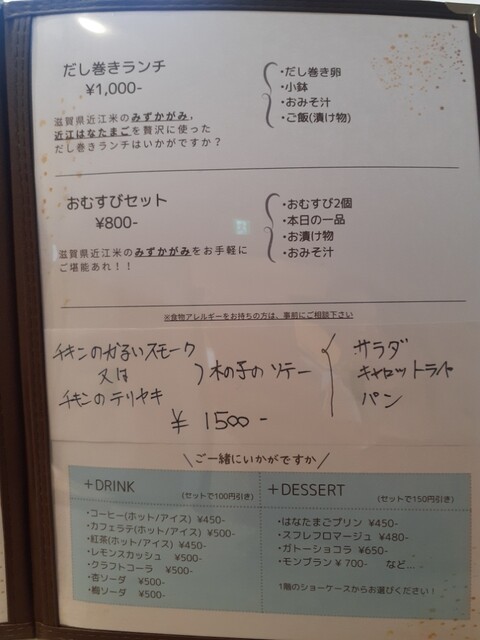 だし巻きランチ
¥1,000-
・だし巻き卵
・小鉢
・おみそ汁
・ご飯(漬け物)
滋賀県近江米のみずかがみ,
近江はなたまごを贅沢に使った
だし巻きランチはいかがですか？
おむすびセット
¥800-
・おむすび2個
・本日の一品
・お漬け物
・おみそ汁
滋賀県近江米のみずかがみをお手軽に
ご堪能あれ！！
※食物アレルギーをお持ちの方は、事前にご相談下さい
チキンのかるいスモーク
又は
チキンのテリヤキ
木の子のソテー
サラダ
キャロットラペ
パン
¥1500-
＼ご一緒にいかがですか／
+DRINK (セットで100円引き)
・コーヒー(ホット/アイス) ¥450-
・カフェラテ(ホット/アイス) ¥500-
・紅茶(ホット/アイス) ¥450-
・レモンスカッシュ ¥500-
・クラフトコーラ ¥500-
・杏ソーダ ¥500-
・梅ソーダ ¥500-
+DESSERT (セットで150円引き)
・はなたまごプリン ¥450-
・スフレフロマージュ ¥480-
・ガトーショコラ ¥650-
・モンブラン ¥700- など...
1階のショーケースからお選びください！